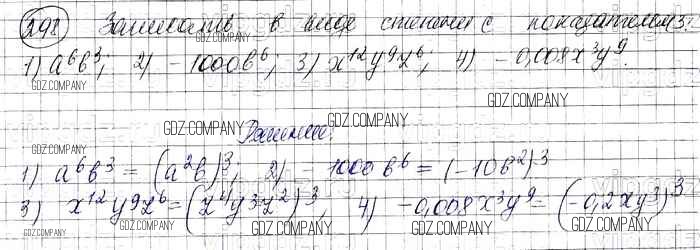 298 Записать в виде степени с показателем 3:
1) a⁶b³; 2) -1000b⁶; 3) x¹²y⁹z⁶; 4) -0,008x³y⁹.
GDZ.COMPANY GDZ.COMPANY GDZ.COMPANY GDZ.COMPANY
GDZ.COMPANY Решение: GDZ.COMPANY
1) a⁶b³ = (a²b)³; 2) -1000b⁶ = (-10b²)³
3) x¹²y⁹z⁶ = (z⁴y³z²)³, 4) -0,008x³y⁹ = (-0,2xy³)³
GDZ.COMPANY GDZ.COMPANY GDZ.COMPANY GDZ.COMPANY